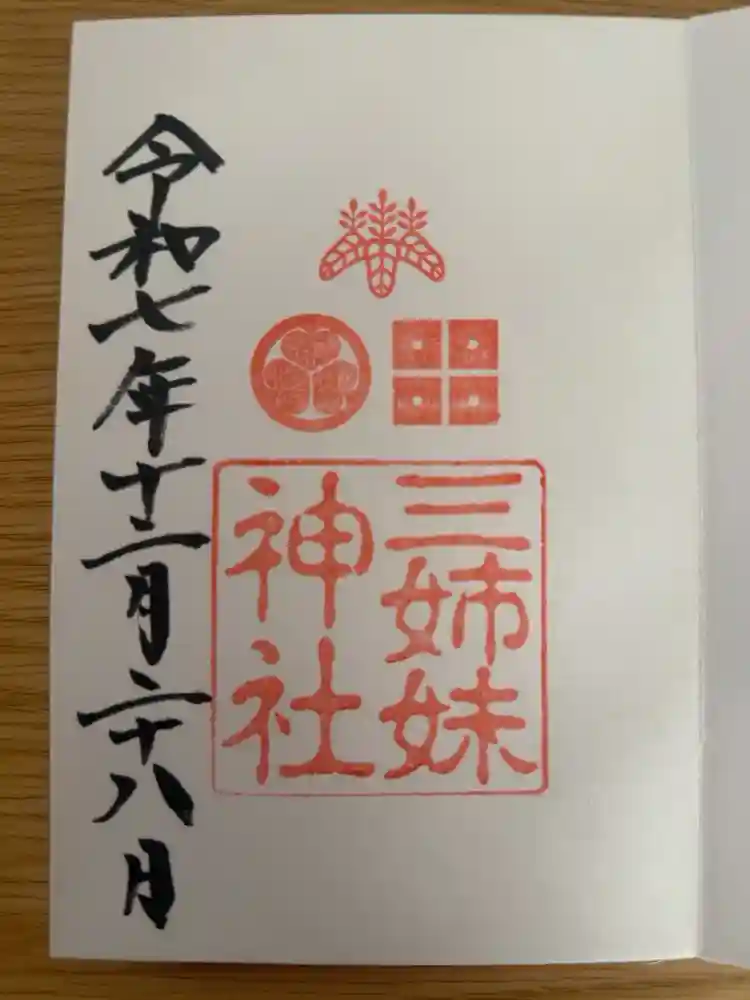 三姉妹
神社
令和七年十二月二十八月